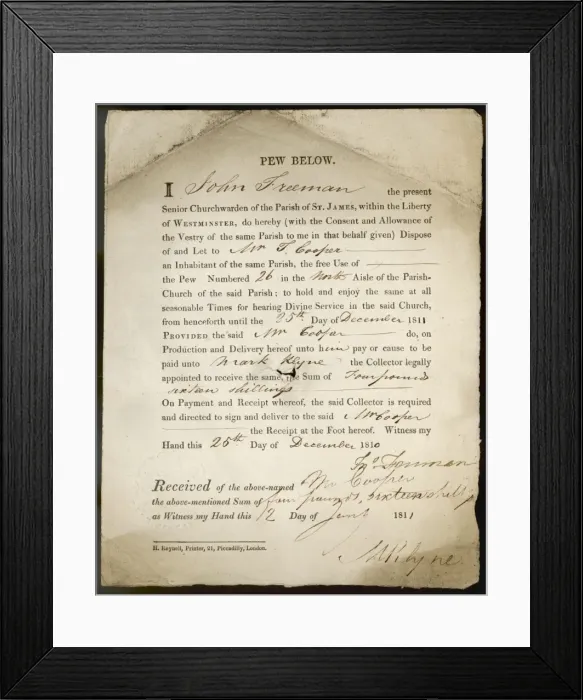 PEW BELOW.
I John Freeman the present
Senior Churchwarden of the Parish of ST. JAMES, within the Liberty
of WESTMINSTER, do hereby (with the Consent and Allowance of
the Vestry of the same Parish to me in that behalf given) Dispose
of and Let to Mr T. Cooper
an Inhabitant of the same Parish, the free Use of
the Pew Numbered 26 in the North Aisle of the Parish-
Church of the said Parish; to hold and enjoy the same at all
seasonable Times for hearing Divine Service in the said Church,
from henceforth until the 25th Day of December 1811
PROVIDED the said Mr Cooper do, on
Production and Delivery hereof unto him pay or cause to be
paid unto Mark Klyne the Collector legally
appointed to receive the same, the Sum of Four pounds
sixteen shillings
On Payment and Receipt whereof, the said Collector is required
and directed to sign and deliver to the said Mr Cooper
the Receipt at the Foot hereof. Witness my
Hand this 25th Day of December 1810
Jno Freeman
Received of the above-named Mr Cooper
the above-mentioned Sum of four pounds, sixteen shillgs
as Witness my Hand this 12 Day of June 1811
M Klyne
H. Reynell, Printer, 21, Piccadilly, London.